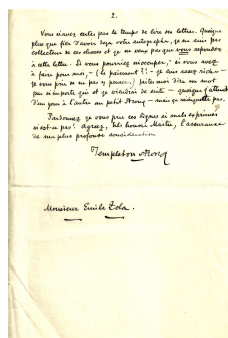 2.
Vous n'avez certes pas le temps de lire mes lettres. Quoique
plus que fier d'avoir déjà votre autographe, je ne suis pas
collecteur de ces choses et je ne veux pas que vous répondiez
à cette lettre. Si vous pouvez m'occuper, si vous avez
à faire pour moi, — (le paiement?! — je suis assez riche —
je vous prie de ne pas y penser.) faites moi dire un mot
par n'importe qui et je viendrai de suite — quoique j'attend
d'un jour à l'autre un petit Strong — mais ça n'inquiette pas.
Pardonnez je vous prie ces lignes si mal exprimés
n'est-ce pas? Agréez, très honoré Maître, l'assurance
de ma plus profonde considération
Templeton Strong
Monsieur Emile Zola.